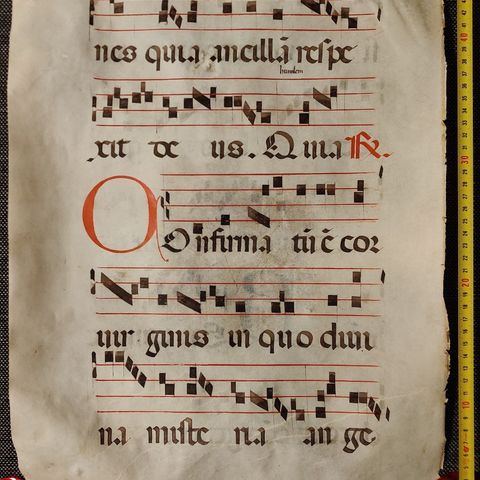 nes quia ancillā respe
humilem
xit de us. Quia R.
Confirma tū ē cor
uir ginis in quo diui
na miste ria an ge